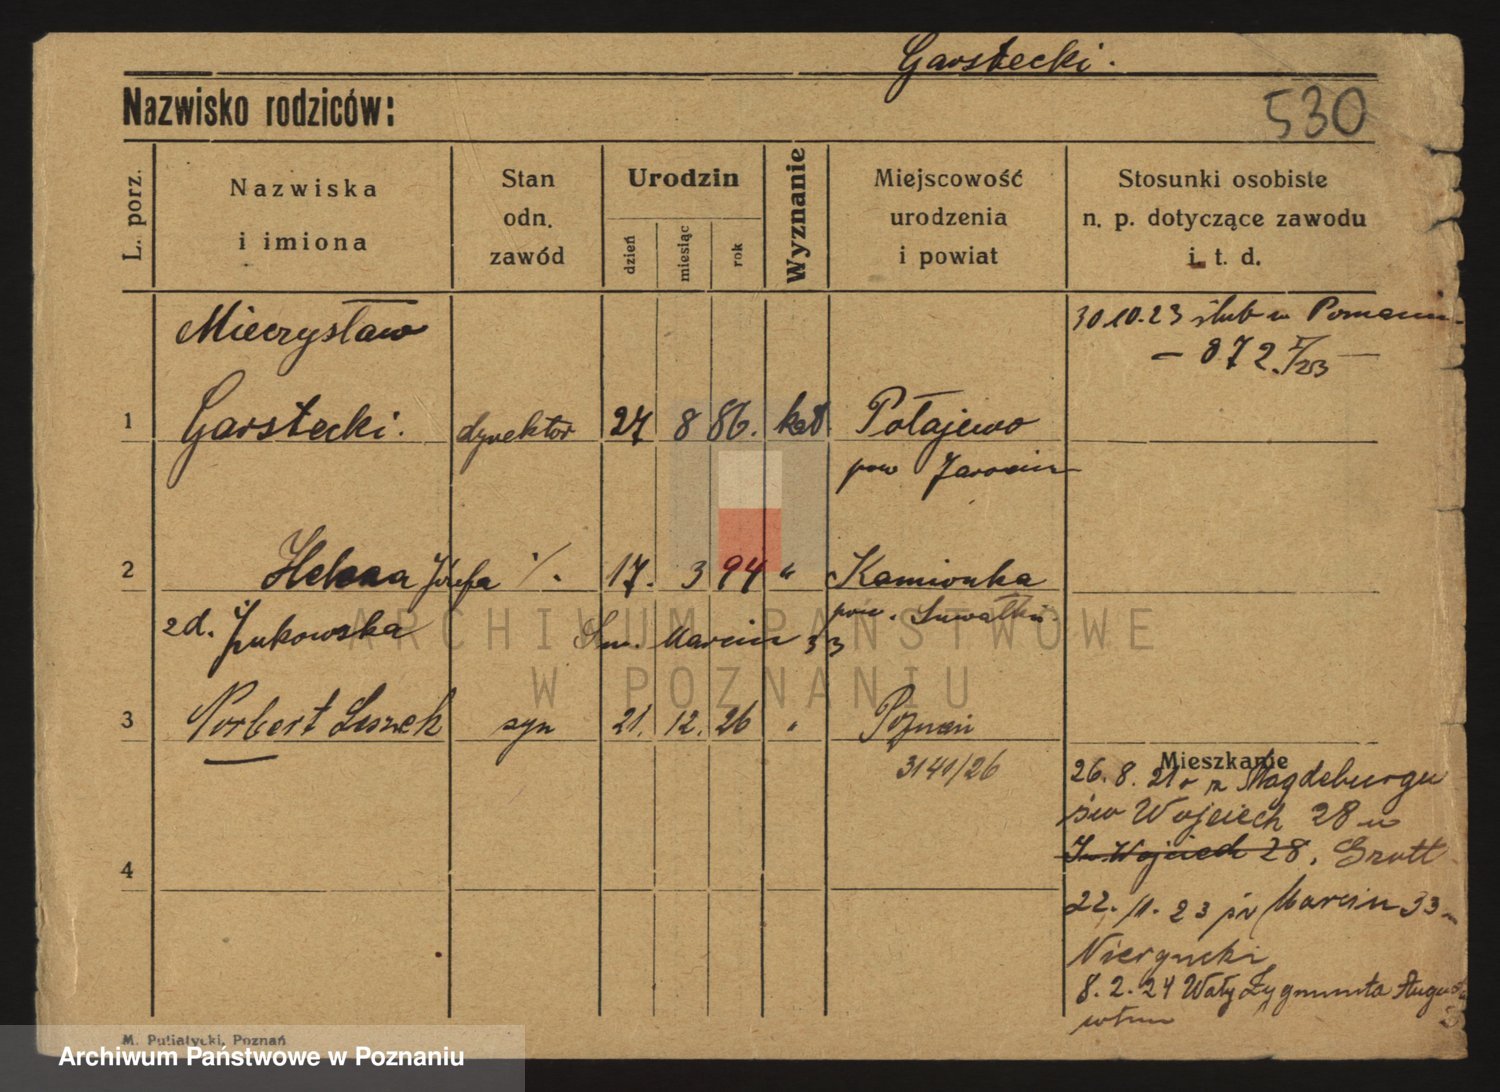 Garstecki.
530
Nazwisko rodziców:
L. porz.
Nazwiska
i imiona
Stan
odn.
zawód
Urodzin
dzień
miesiąc
rok
Wyznanie
Miejscowość
urodzenia
i powiat
Stosunki osobiste
n. p. dotyczące zawodu
i. t. d.
30.10.23 ślub w Poznaniu
— 872. /23 —
Mieczysław
1 Garstecki. dyrektor 27 8 86. kat. Połajewo
pow Jarocin
2 Helena Józefa 17. 3 94 " Kamionka
zd. Żukowska Św. Marcin 33 pow. Suwałki
3 Norbert Leszek syn 21. 12. 26 " Poznań
3141/26
4
Mieszkanie
26. 8. 21 r z Magdeburgu
św Wojciech 28 u
Św Wojciech 28,
22. 11. 23 św Marcin 33
8. 2. 24 Wały Zygmunta Augusta
3
M. Putiatycki, Poznań
ARCHIWUM PAŃSTWOWE
W POZNANIU
Archiwum Państwowe w Poznaniu